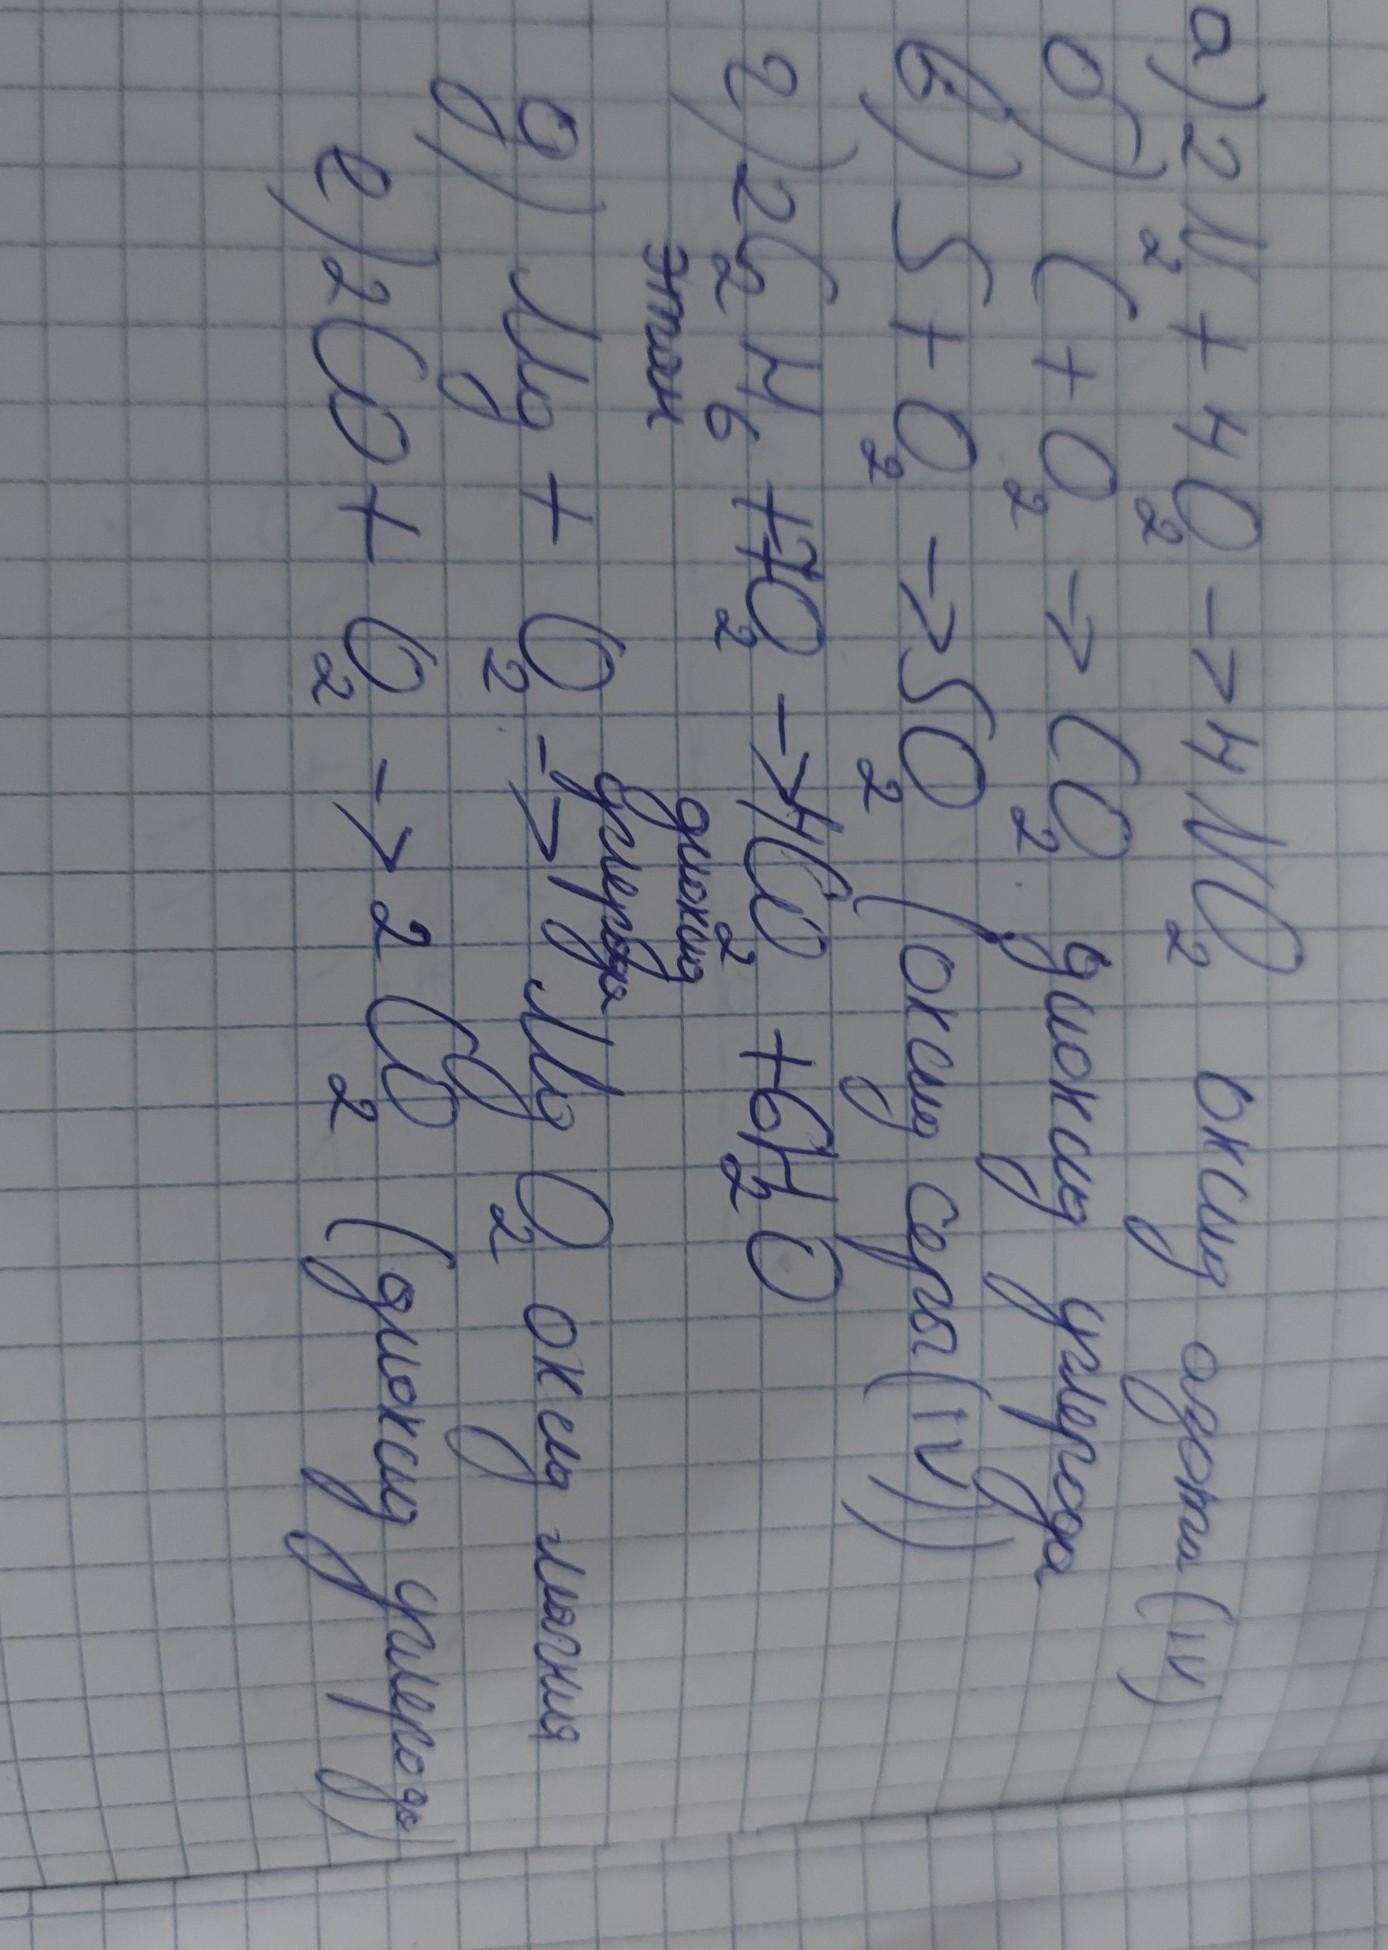 а) 2N₂ + 4O₂ → 4NO₂ оксид азота (IV)
б) C + O₂ → CO₂ диоксид углерода
в) S + O₂ → SO₂ (оксид серы (IV))
г) 2C₂H₆ + 7O₂ → 4CO₂ + 6H₂O
этан диоксид
углерода
д) Mg + O₂ → MgO₂ оксид магния
е) 2CO + O₂ → 2CO₂ (диоксид углерода)